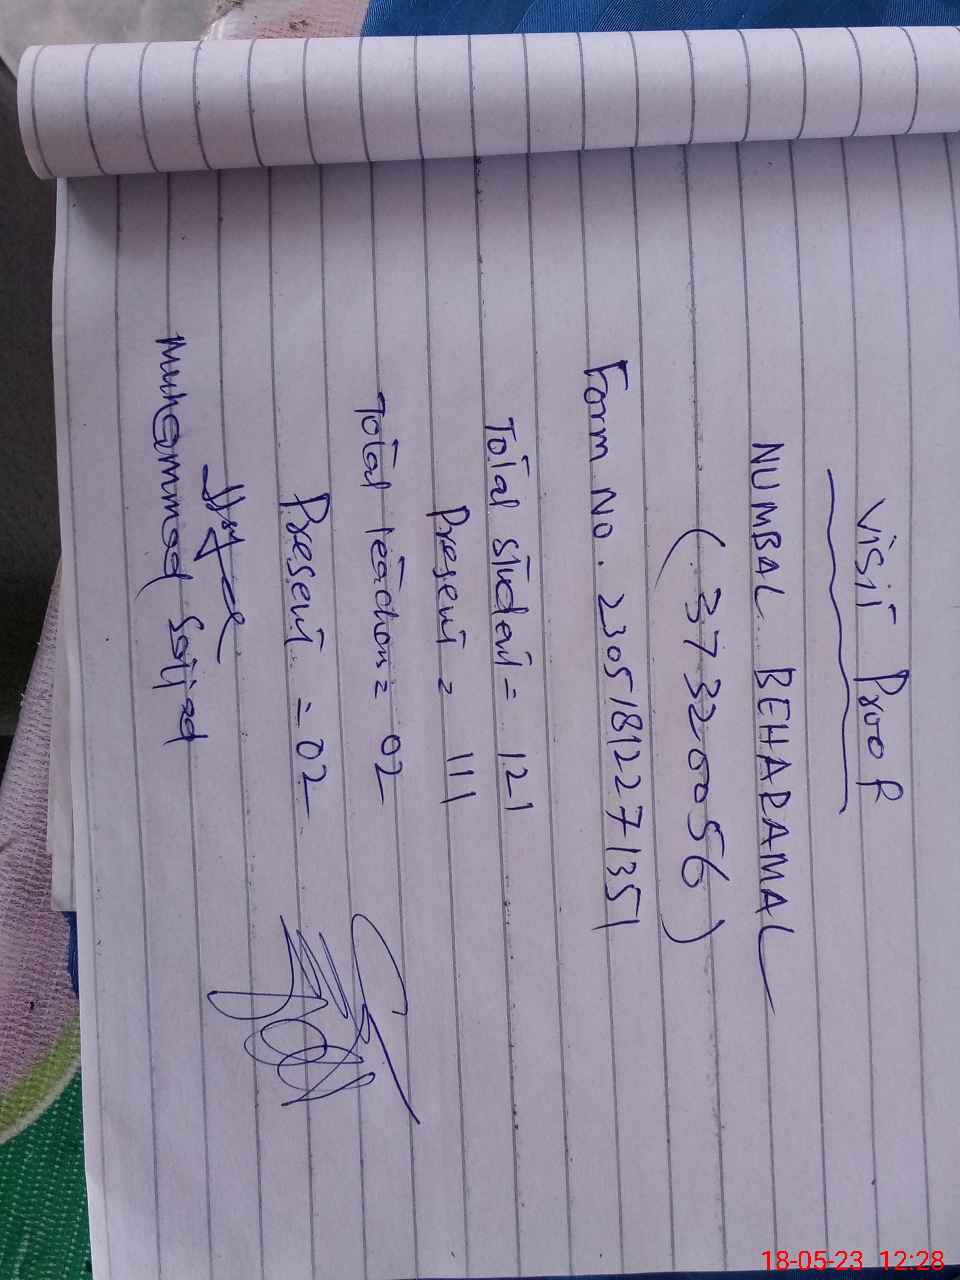 Visit Proof
NUMBAL BEHARAMAL
(37320056)
Form No. 23051812271351
Total student = 121
Present = 111
Total teachors = 02
Present = 02
Muhammad Sajjad
18-05-23 12:28